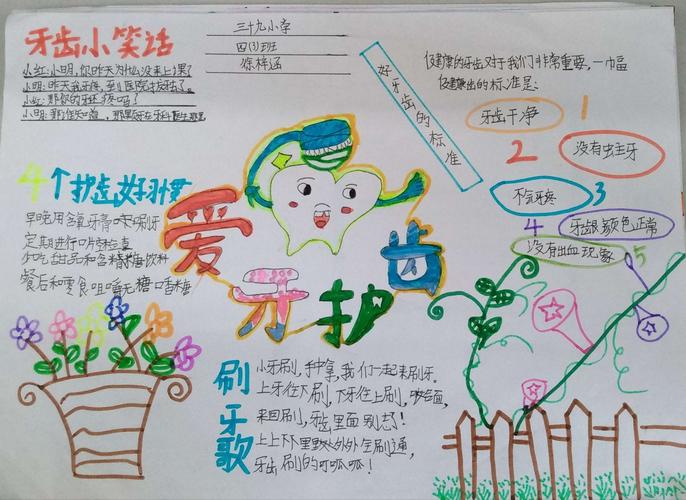 牙齿小笑话
小红:小明,你昨天为什么没来上课?
小明:昨天我牙疼,到医院拔牙了。
小红:那你的牙还疼吗?
小明:那谁知道
三十九小学
四(3)班
好牙齿的标准
健康的牙齿对于我们非常重要,一口
健康出的标准是:
牙齿干净 1
2 没有虫主牙
不气牙疼 3
4 牙龈颜色正常
没有出血现象 5
4个护齿好习惯
早晚用含氟牙膏
定期进行口腔检查
少吃甜品和含糖饮料
餐后和零食咀嚼无糖口香糖
爱牙护齿
刷牙歌
小牙刷,手中拿,我们一起来刷牙。
上牙往下刷,下牙往上刷,咬合面,
来回刷,牙齿里面别忘!
上上下下里里外外全刷通,
牙齿刷的叮呱呱!